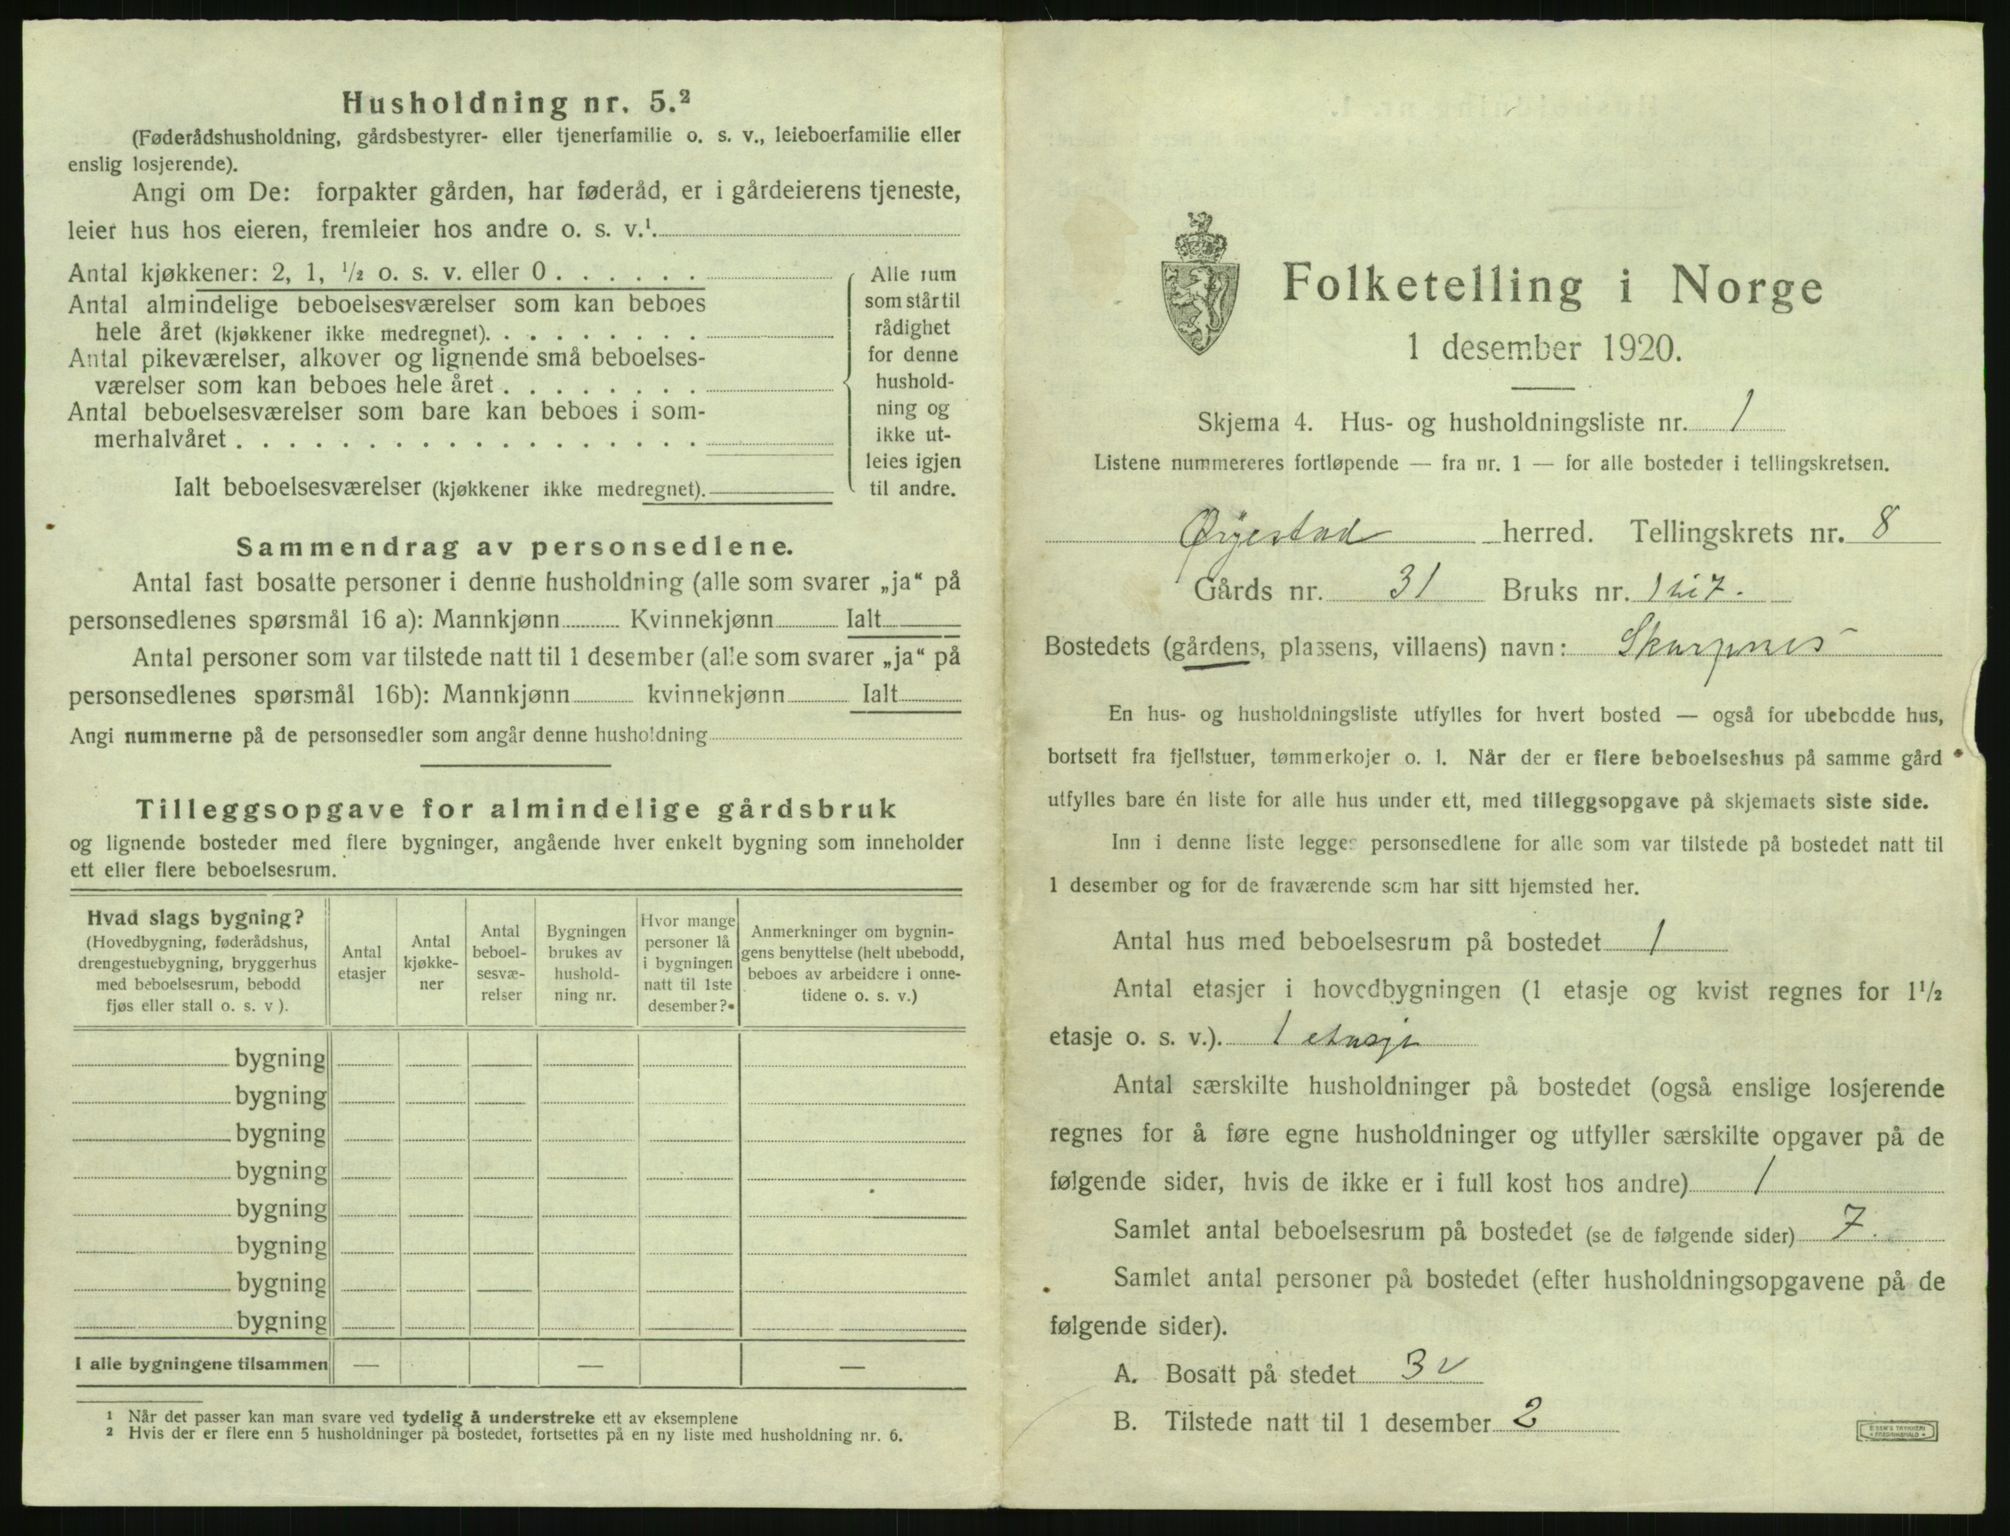 Husholdning nr. 5.²
(Føderådshusholdning, gårdsbestyrer- eller tjenerfamilie o. s. v., leieboerfamilie eller
enslig losjerende).
Angi om De: forpakter gården, har føderåd, er i gårdeierens tjeneste,
leier hus hos eieren, fremleier hos andre o. s. v.¹.
Antal kjøkkener: 2, 1, ½ o. s. v. eller 0 . . . . . .
Antal almindelige beboelsesværelser som kan beboes
hele året (kjøkkener ikke medregnet). . . . . . . . .
Antal pikeværelser, alkover og lignende små beboelses-
værelser som kan beboes hele året . . . . . . . .
Antal beboelsesværelser som bare kan beboes i som-
merhalvåret . . . . . . . . . . . . . . . . . .
Ialt beboelsesværelser (kjøkkener ikke medregnet).
Alle rum
som står til
rådighet
for denne
hushold-
ning og
ikke ut-
leies igjen
til andre.
Sammendrag av personsedlene.
Antal fast bosatte personer i denne husholdning (alle som svarer „ja“ på
personsedlenes spørsmål 16 a): Mannkjønn Kvinnekjønn Ialt
Antal personer som var tilstede natt til 1 desember (alle som svarer „ja“ på
personsedlenes spørsmål 16b): Mannkjønn kvinnekjønn Ialt
Angi nummerne på de personsedler som angår denne husholdning
Tilleggsopgave for almindelige gårdsbruk
og lignende bosteder med flere bygninger, angående hver enkelt bygning som inneholder
ett eller flere beboelsesrum.
Hvad slags bygning?
(Hovedbygning, føderådshus,
drengestuebygning, bryggerhus
med beboelsesrum, bebodd
fjøs eller stall o. s. v ).
Antal
etasjer
Antal
kjøkke-
ner
Antal
beboel-
sesvæ-
relser
Bygningen
brukes av
hushold-
ning nr.
Hvor mange
personer lå
i bygningen
natt til 1ste
desember?
Anmerkninger om bygnin-
gens benyttelse (helt ubebodd,
beboes av arbeidere i onne-
tidene o. s. v.)
bygning
bygning
bygning
bygning
bygning
bygning
bygning
bygning
I alle bygningene tilsammen — — —
¹ Når det passer kan man svare ved tydelig å understreke ett av eksemplene
² Hvis der er flere enn 5 husholdninger på bostedet, fortsettes på en ny liste med husholdning nr. 6.
Folketelling i Norge
1 desember 1920.
Skjema 4. Hus- og husholdningsliste nr. 1
Listene nummereres fortløpende — fra nr. 1 — for alle bosteder i tellingskretsen.
Øyestad herred. Tellingskrets nr. 8
Gårds nr. 31 Bruks nr. 1
Bostedets (gårdens, plassens, villaens) navn: Skarpnes
En hus- og husholdningsliste utfylles for hvert bosted — også for ubebodde hus,
bortsett fra fjellstuer, tømmerkojer o. l. Når der er flere beboelseshus på samme gård
utfylles bare én liste for alle hus under ett, med tilleggsopgave på skjemaets siste side.
Inn i denne liste legges personsedlene for alle som var tilstede på bostedet natt til
1 desember og for de fraværende som har sitt hjemsted her.
Antal hus med beboelsesrum på bostedet 1
Antal etasjer i hovedbygningen (1 etasje og kvist regnes for 1½
etasje o. s. v.). 1 etasje
Antal særskilte husholdninger på bostedet (også enslige losjerende
regnes for å føre egne husholdninger og utfyller særskilte opgaver på de
følgende sider, hvis de ikke er i full kost hos andre) 1
Samlet antal beboelsesrum på bostedet (se de følgende sider) 7.
Samlet antal personer på bostedet (efter husholdningsopgavene på de
følgende sider).
A. Bosatt på stedet 3 v
B. Tilstede natt til 1 desember 2